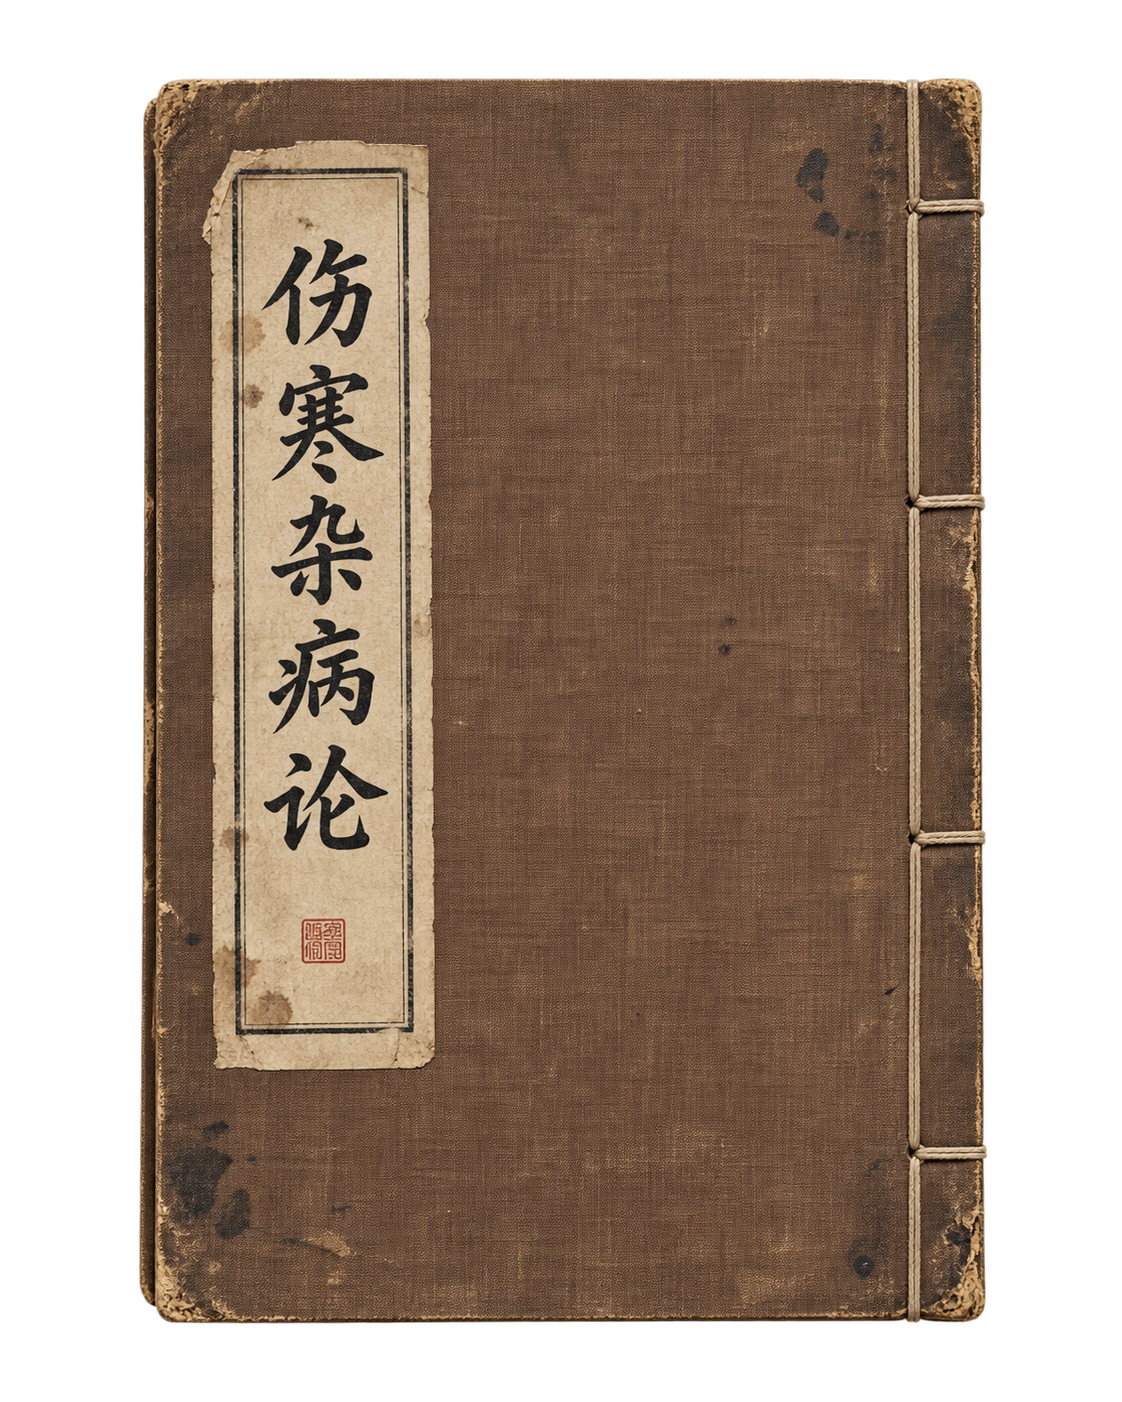 伤寒杂病论